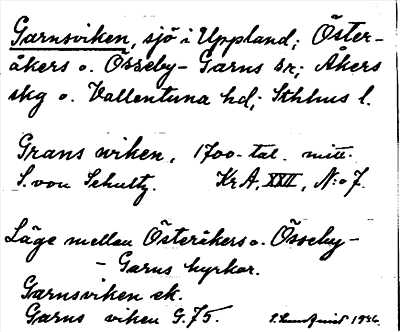 Garnsviken, sjö i Uppland; Öster-
åkers o. Össeby-Garns sr; Åkers
skg o. Vallentuna hd; Sthlms l.
Grans wiken, 1700-tal. mitt.
S. von Schultz. KrA, XXII, N:o 7.
Läge mellan Österåkers o. Össeby-
- Garns kyrkor.
Garnsviken ek.
Garns viken G.75. 1936.